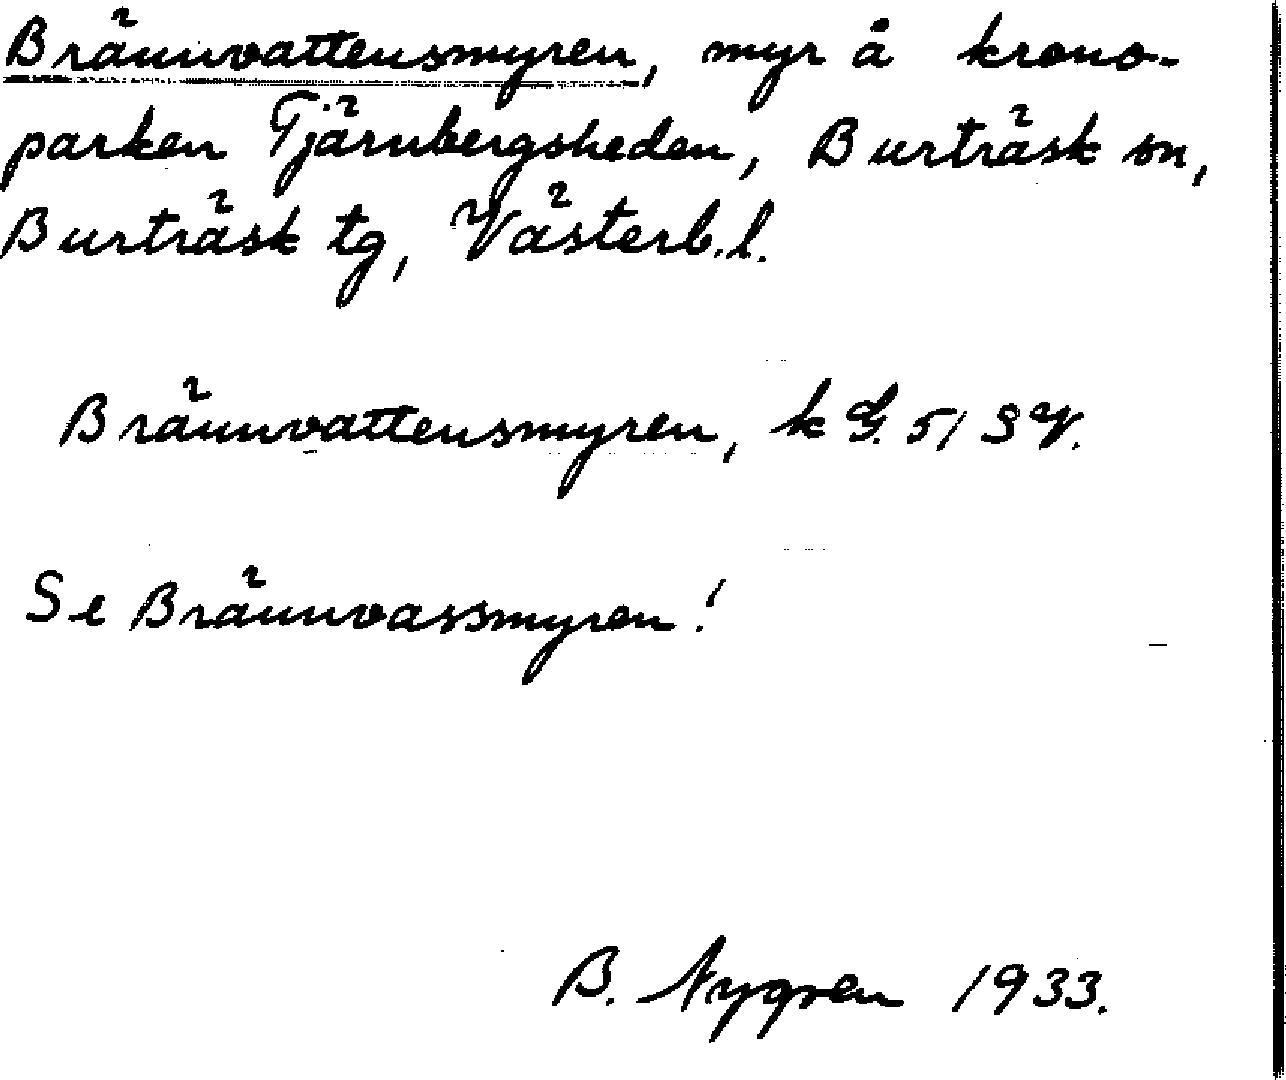 Brännvattensmyren, myr å krono-
parken Tjärnbergsheden, Burträsk sn,
Burträsk tg, Västerb.l.
Brännvattensmyren, k G. 51 SV.
Se Brännvassmyren!
B. Nygren 1933.